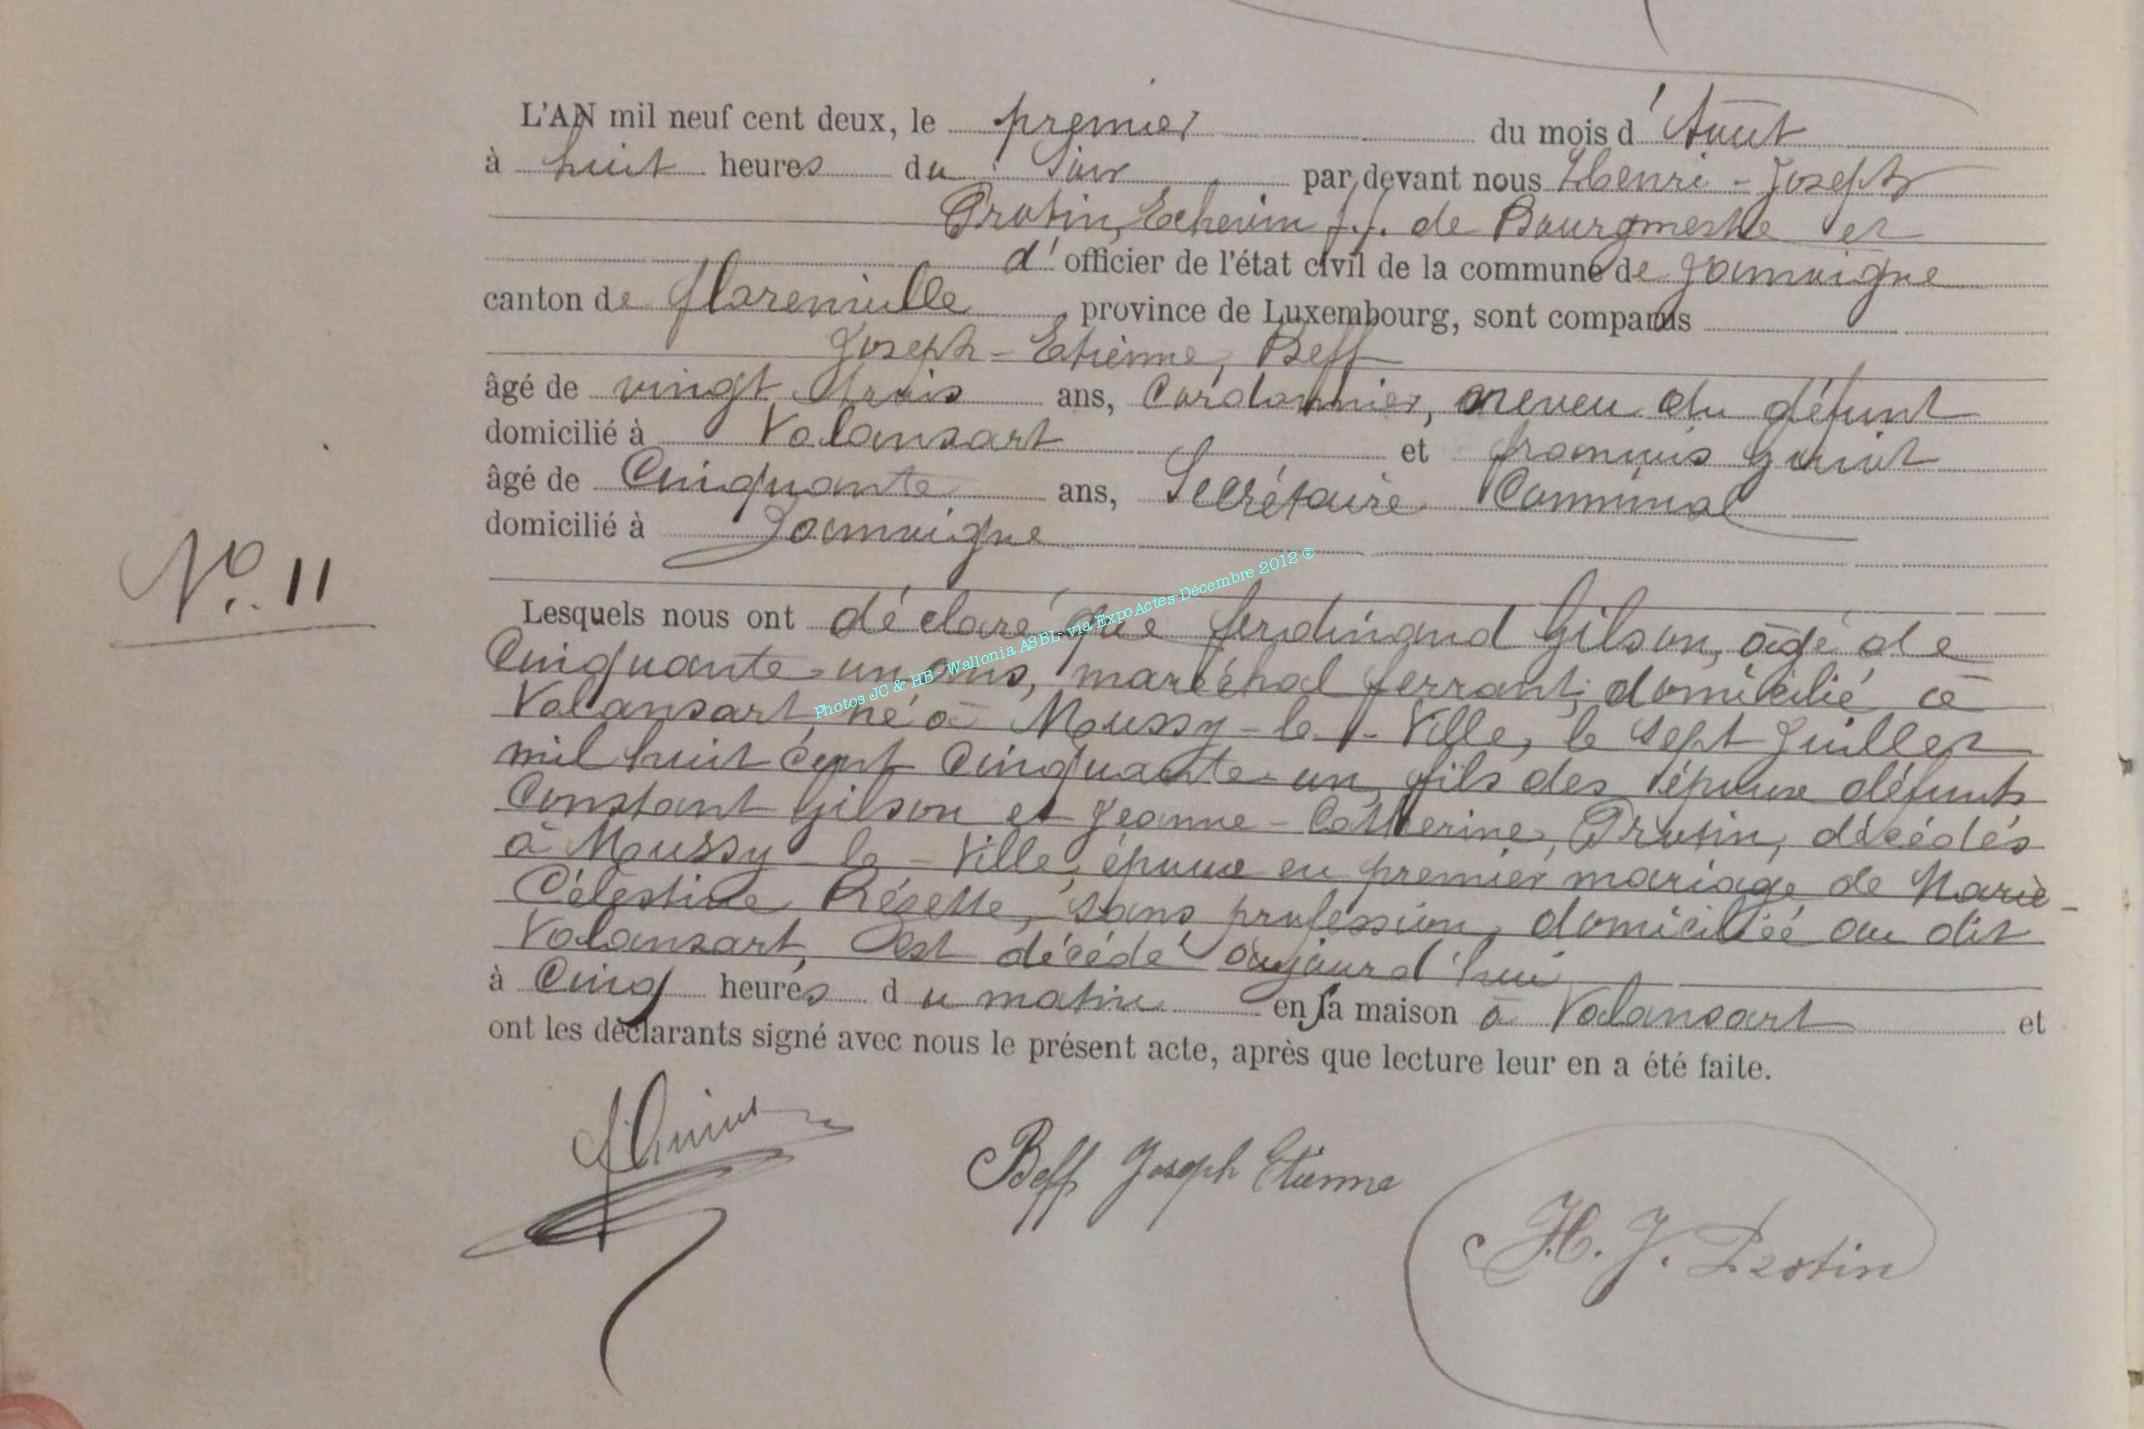 L'AN mil neuf cent deux, le premier du mois d'Août
à huit heures du Soir par devant nous Henri-Joseph
Protin, Echevin f.f. de Bourgmestre et
d' officier de l'état civil de la commune de Jamoigne
canton de Florenville province de Luxembourg, sont comparus
Joseph-Etienne, Beff
âgé de vingt trois ans, Cordonnier, neveu du défunt
domicilié à Valansart et françois
âgé de Cinquante ans, Secrétaire Communal
domicilié à Jamoigne
N° 11
Lesquels nous ont déclaré que ferdinand Gilson, âgé de
Cinquante-un ans, maréchal ferrant, domicilié à
Valansart, né à Moussy-la-Ville, le sept Juillet
mil huit cent cinquante-un, fils des époux défunts
Constant Gilson et Jeanne-Catherine, Protin, décédés
à Moussy-la-Ville, époux en premier mariage de Marie-
Célestine Rézette, sans profession, domiciliée au dit
Valansart, est décédé aujourd'hui
à Cinq heures du matin en sa maison à Valansart et
ont les déclarants signé avec nous le présent acte, après que lecture leur en a été faite.
Beff Joseph Etienne
H. J. Protin
Photos JC & HB - Wallonia ASBL - via ExpoActes Décembre 2012 ©